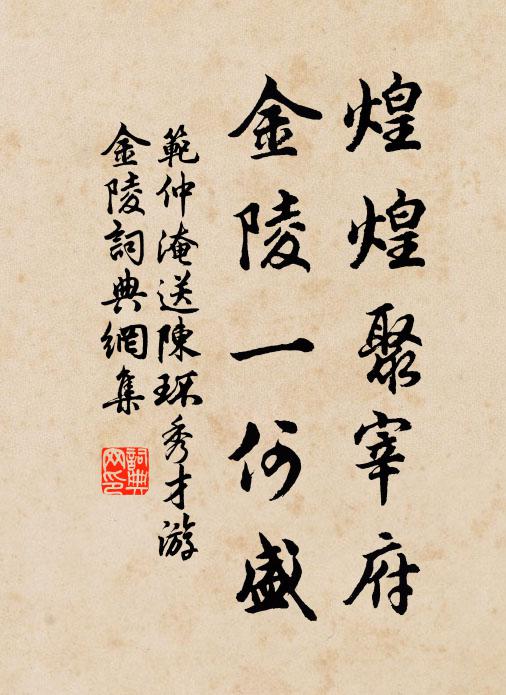 煌煌聚宰府
金陵一何盛
範仲淹送陳琛秀才游
金陵詞典網集
詞典网印